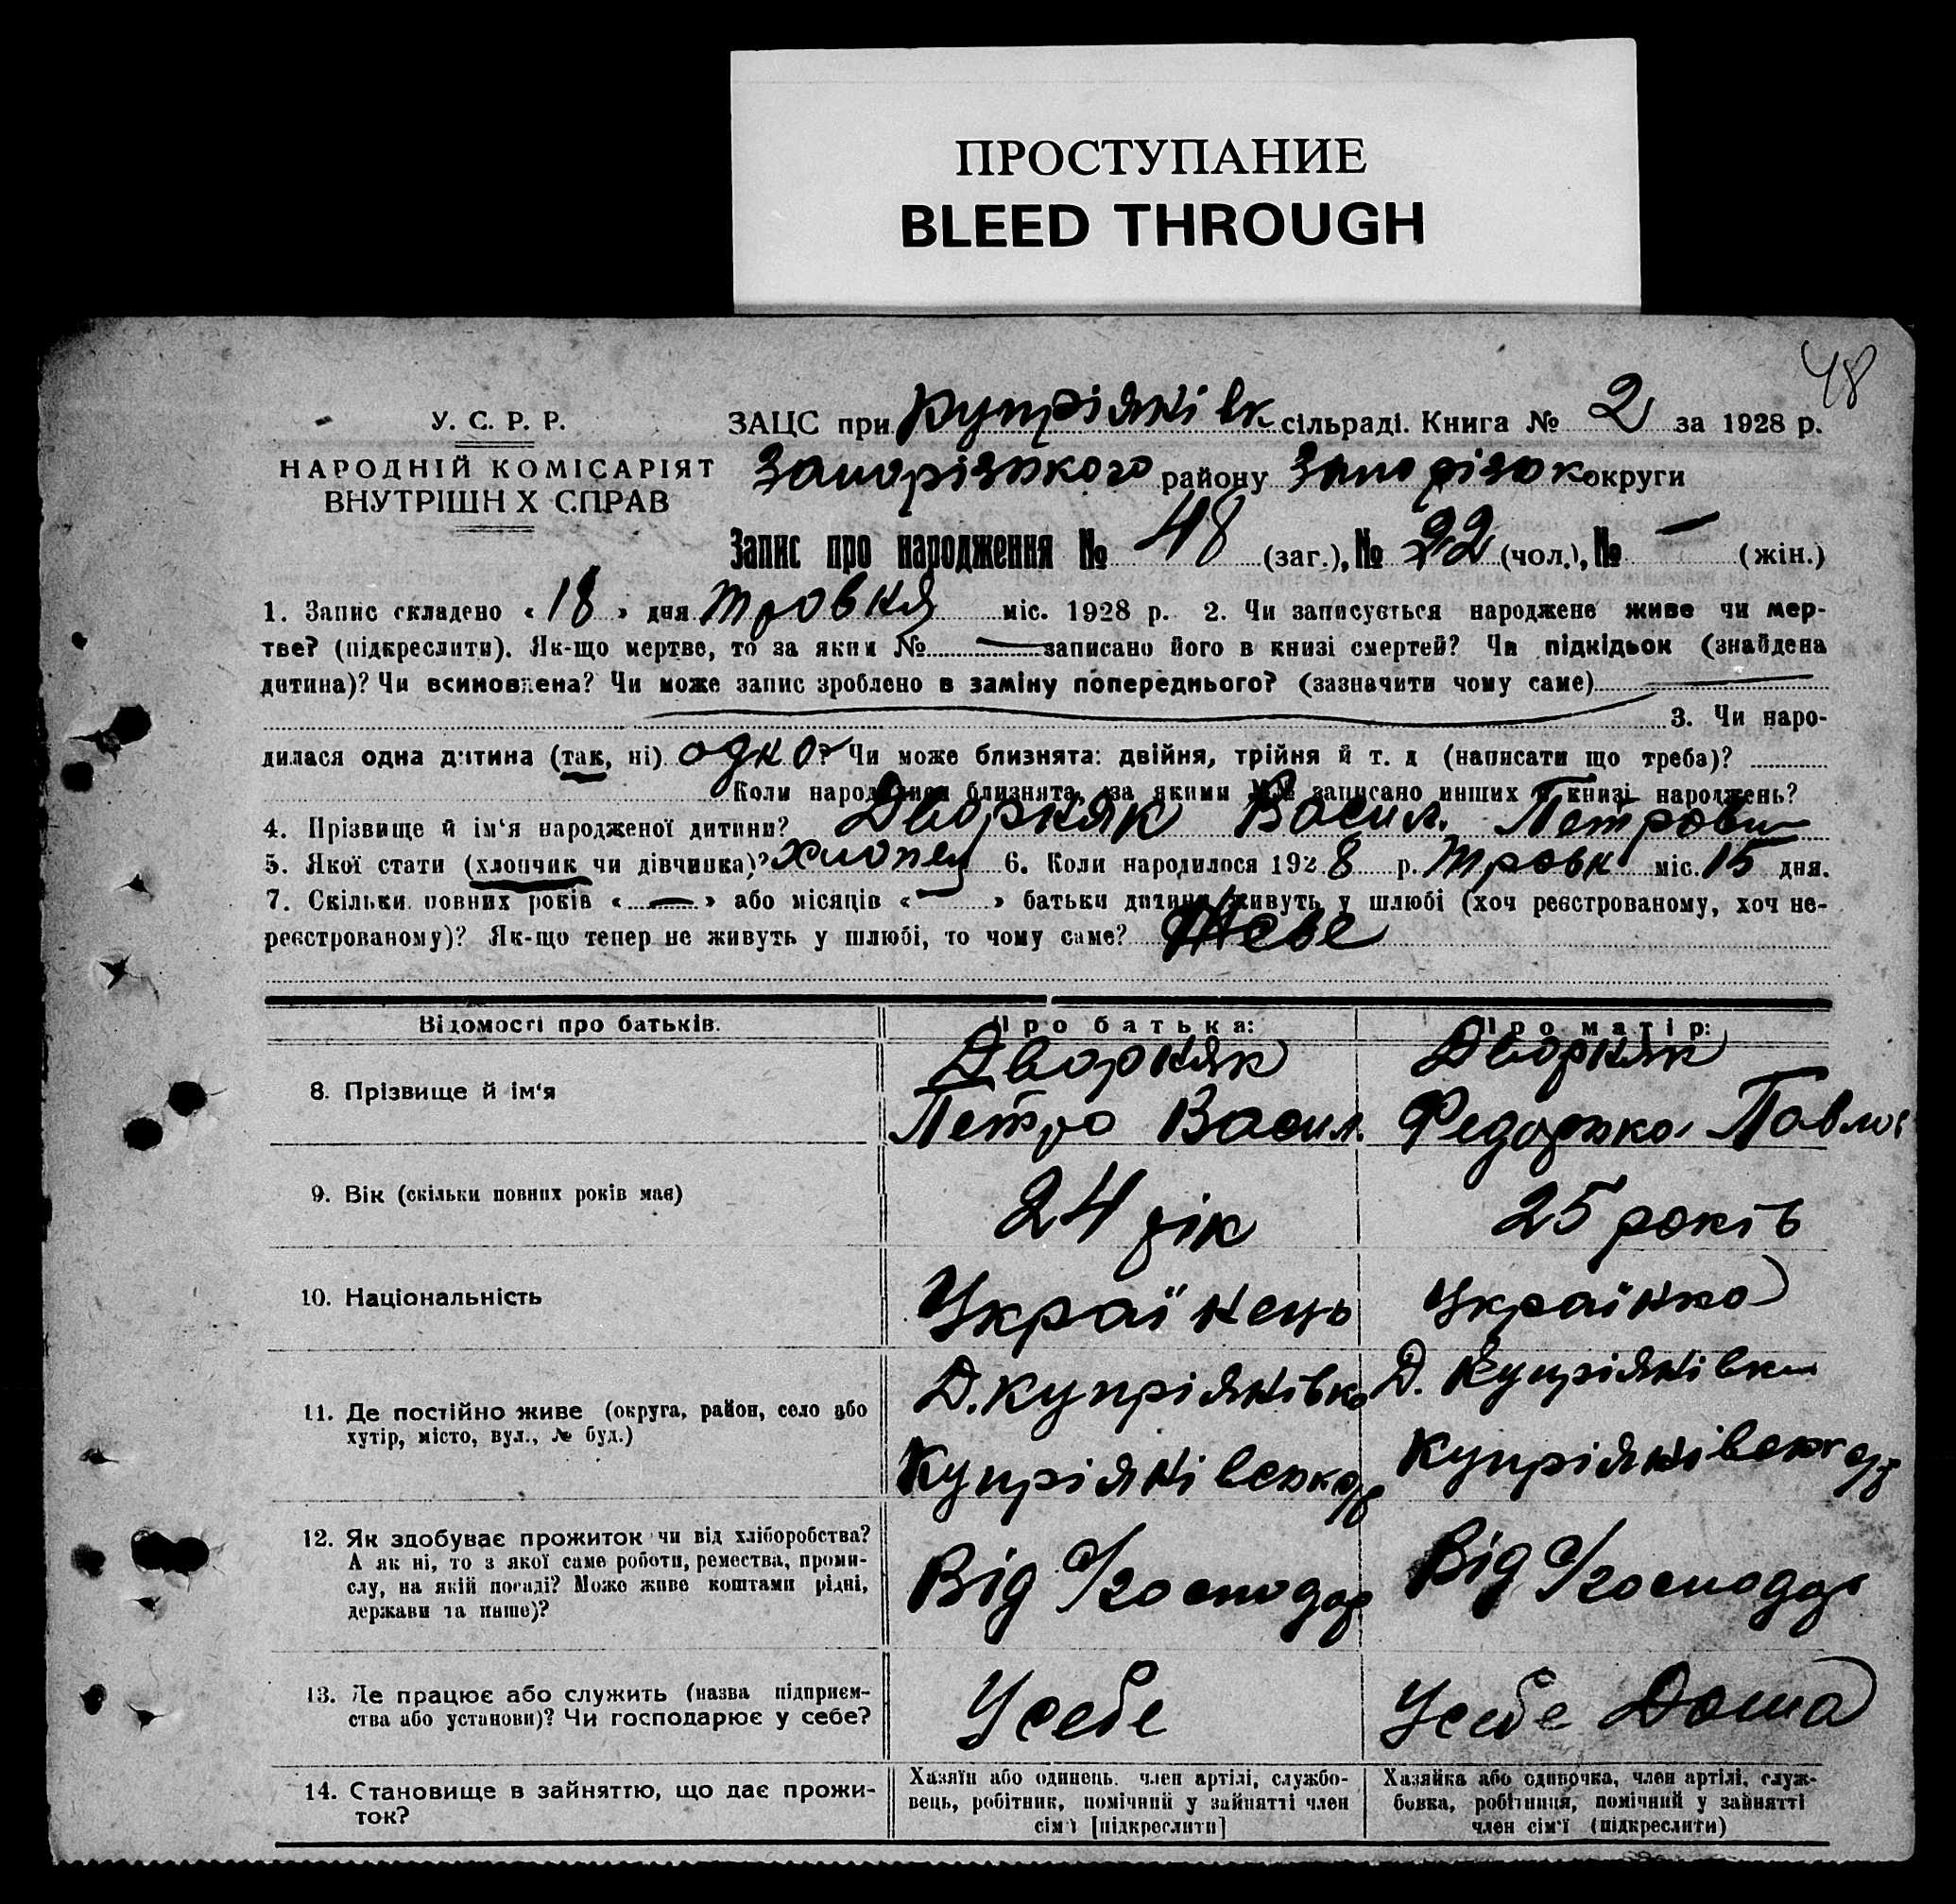 ПРОСТУПАНИЕ
BLEED THROUGH
48
У. С. Р. Р.
НАРОДНІЙ КОМІСАРІЯТ
ВНУТРІШН Х СПРАВ
ЗАЦС при Купріянівк сільраді. Книга № 2 за 1928 р.
Запорізького району Запорізьк округи
Запис про народження № 48 (заг.), № 22 (чол.), № — (жін.)
1. Запис складено « 18 » дня Травня міс. 1928 р. 2. Чи записується народжене живе чи мер-
тве? (підкреслити). Як-що мертве, то за яким № — записано його в книзі смертей? Чи підкідьок (знайдена
дитина)? Чи всиновлена? Чи може запис зроблено в заміну попереднього? (зазначити чому саме)
3. Чи наро-
дилася одна дитина (так, ні) одно? Чи може близнята: двійня, трійня й т. д (написати що треба)?
Коли народилися близнята, за якими №№ записано инших в книзі народжень?
4. Прізвище й ім'я народженої дитини? Дворняк Васил. Петрови
5. Якої стати (хлопчик чи дівчинка)? Хлопец 6. Коли народилося 1928 р. Травн міс. 15 дня.
7. Скільки повних років « — » або місяців « — » батьки дитини живуть у шлюбі (хоч реєстрованому, хоч не-
реєстрованому)? Як-що тепер не живуть у шлюбі, то чому саме?
Відомості про батьків.
Про батька:
Про матір:
8. Прізвище й ім'я
Дворняк
Петро Васил.
Дворняк
Федорька Павлов
9. Вік (скільки повних років має)
24 рік
25 років
10. Національність
Українець
Українка
11. Де постійно живе (округа, район, село або
хутір, місто, вул., № буд.)
Д. Купріянівка
Купріянівськ
Д. Купріянівка
Купріянівськ
12. Як здобуває прожиток чи від хліборобства?
А як ні, то з якої саме роботи, ремества, проми-
слу, на якій посаді? Може живе коштами рідні,
держави та инше)?
Від С/господар
Від С/господар
13. Де працює або служить (назва підприєм-
ства або установи)? Чи господарює у себе?
У себе
У себе Дома
14. Становище в зайняттю, що дає прожи-
ток?
Хазяїн або одинець, член артілі, службо-
вець, робітник, помічний у зайнятті член
сім'ї [підкреслити]
Хазяйка або одиночка, член артілі, служ-
бовка, робітниця, помічний у зайнятті
член сім'ї (підкреслити)